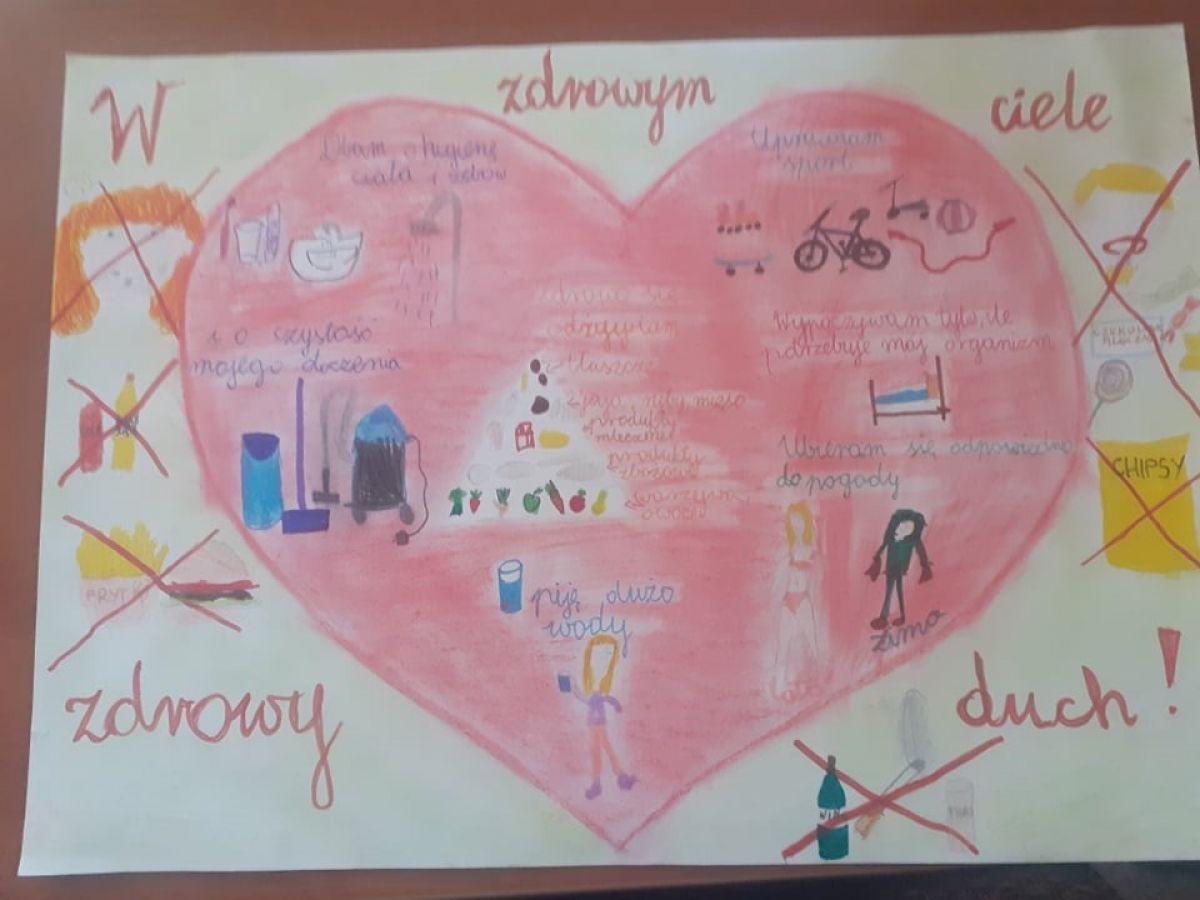 W zdrowym ciele
zdrowy duch!
Dbam o higienę
ciała i zębów
i o czystość
mojego otoczenia
Uprawiam
sport
zdrowo się
odżywiam
tłuszcze
jaja, ryby, mięso
produkty
mleczne
produkty
zbożowe
warzywa,
owoce
Wypoczywam tyle, ile
potrzebuje mój organizm
Ubieram się odpowiednio
do pogody
lato
zima
piję dużo
wody
CHIPSY
FRYT
WIN